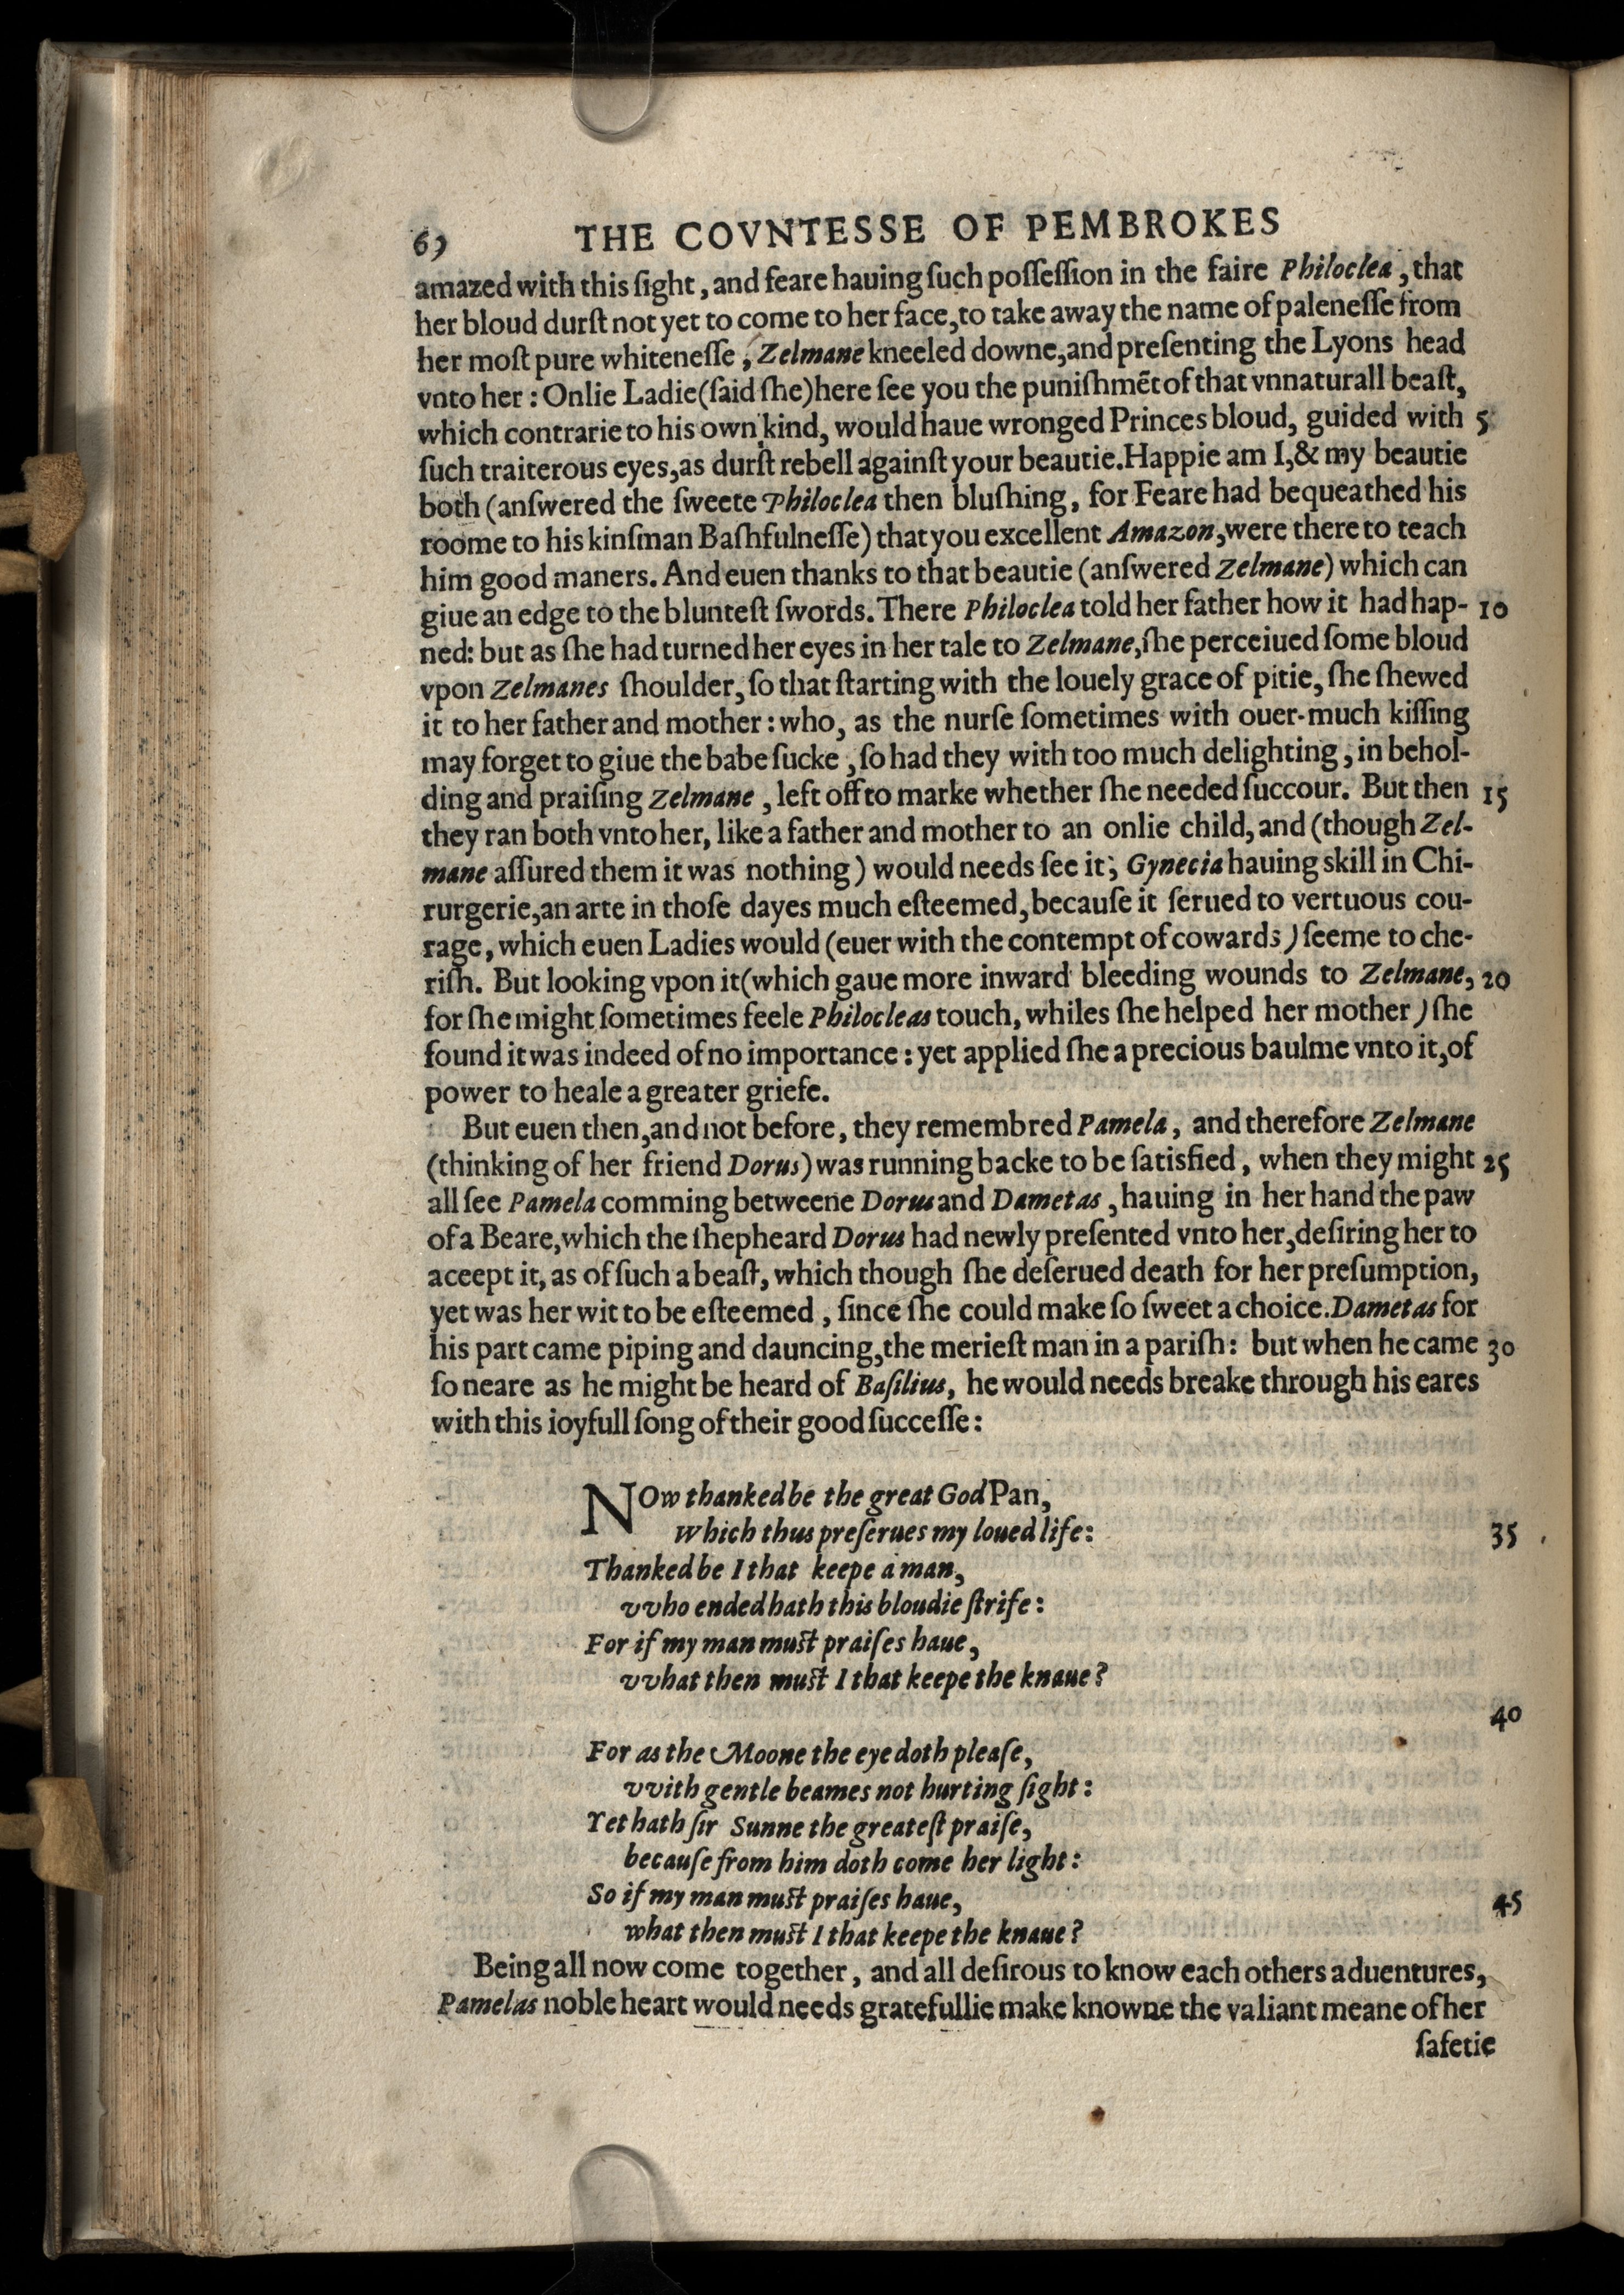 69 THE COVNTESSE OF PEMBROKES
amazed with this ſight, and feare hauing ſuch poſſeſſion in the faire Philoclea, that
her bloud durſt not yet to come to her face, to take away the name of paleneſſe from
her moſt pure whiteneſſe, Zelmane kneeled downe, and preſenting the Lyons head
vnto her: Onlie Ladie (ſaid ſhe) here ſee you the puniſhmēt of that vnnaturall beaſt,
which contrarie to his own kind, would haue wronged Princes bloud, guided with 5
ſuch traiterous eyes, as durſt rebell againſt your beautie. Happie am I, & my beautie
both (anſwered the ſweete Philoclea then bluſhing, for Feare had bequeathed his
roome to his kinſman Baſhfulneſſe) that you excellent Amazon, were there to teach
him good maners. And euen thanks to that beautie (anſwered Zelmane) which can
giue an edge to the blunteſt ſwords. There Philoclea told her father how it had hap- 10
ned: but as ſhe had turned her eyes in her tale to Zelmane, ſhe perceiued ſome bloud
vpon Zelmanes ſhoulder, ſo that ſtarting with the louely grace of pitie, ſhe ſhewed
it to her father and mother: who, as the nurſe ſometimes with ouer-much kiſſing
may forget to giue the babe ſucke, ſo had they with too much delighting, in behol-
ding and praiſing Zelmane, left off to marke whether ſhe needed ſuccour. But then 15
they ran both vnto her, like a father and mother to an onlie child, and (though Zel-
mane aſſured them it was nothing) would needs ſee it; Gynecia hauing skill in Chi-
rurgerie, an arte in thoſe dayes much eſteemed, becauſe it ſerued to vertuous cou-
rage, which euen Ladies would (euer with the contempt of cowards) ſeeme to che-
riſh. But looking vpon it (which gaue more inward bleeding wounds to Zelmane, 20
for ſhe might ſometimes feele Philocleas touch, whiles ſhe helped her mother) ſhe
found it was indeed of no importance: yet applied ſhe a precious baulme vnto it, of
power to heale a greater griefe.
But euen then, and not before, they remembred Pamela, and therefore Zelmane
(thinking of her friend Dorus) was running backe to be ſatisfied, when they might 25
all ſee Pamela comming betweene Dorus and Dametas, hauing in her hand the paw
of a Beare, which the ſhepheard Dorus had newly preſented vnto her, deſiring her to
aceept it, as of ſuch a beaſt, which though ſhe deſerued death for her preſumption,
yet was her wit to be eſteemed, ſince ſhe could make ſo ſweet a choice. Dametas for
his part came piping and dauncing, the merieſt man in a pariſh: but when he came 30
ſo neare as he might be heard of Baſilius, he would needs breake through his eares
with this ioyfull ſong of their good ſucceſſe:
NOw thanked be the great God Pan,
Which thus preſerues my loued life: 35
Thanked be I that keepe a man,
vvho ended hath this bloudie ſtrife:
For if my man muſt praiſes haue,
vvhat then muſt I that keepe the knaue?
40
For as the Moone the eye doth pleaſe,
vvith gentle beames not hurting ſight:
Yet hath ſir Sunne the greateſt praiſe,
becauſe from him doth come her light:
So if my man muſt praiſes haue, 45
what then muſt I that keepe the knaue?
Being all now come together, and all deſirous to know each others aduentures,
Pamelas noble heart would needs gratefullie make knowne the valiant meane of her
ſafetie